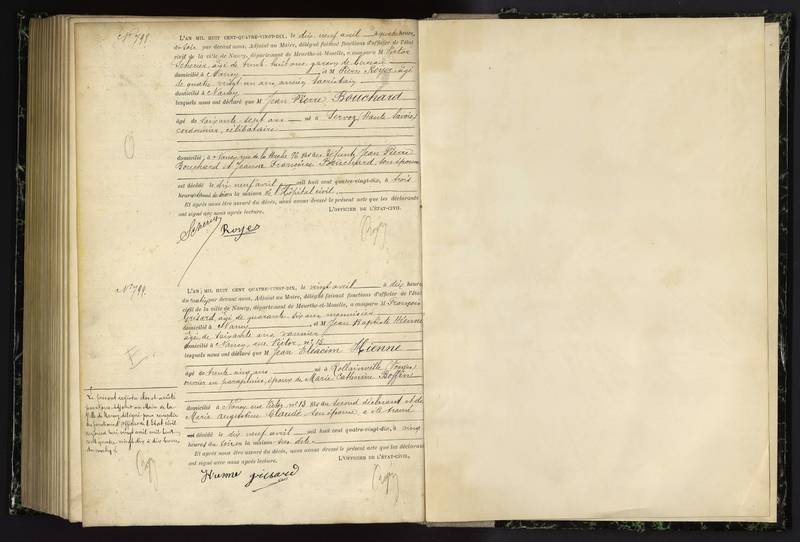 N° 798.
L'AN MIL HUIT CENT QUATRE-VINGT-DIX, le dix neuf avril à quatre heures
du soir par devant nous, Adjoint au Maire, délégué faisant fonctions d'officier de l'état
civil de la ville de Nancy, département de Meurthe-et-Moselle, a comparu M Victor
Scherier, âgé de trente huit ans, garçon de bureau
domicilié à Nancy et M Pierre Royer, âgé
de quatre vingt un ans, ancien sacristain
domicilié à Nancy
lesquels nous ont déclaré que M Jean Pierre Bouchard
âgé de soixante sept ans né à Servoz, Haute Savoie
cordonnier, célibataire
domicilié, à Nancy, rue de la 96 fils des défunts Jean Pierre
Bouchard et Jeanne Françoise Bouchard, son épouse
est décédé le dix neuf avril mil huit cent quatre-vingt-dix, à trois
heures en la maison de l'hôpital civil.
Et après nous être assuré du décès, nous avons dressé le présent acte que les déclarants
ont signé avec nous après lecture.
L'OFFICIER DE L'ÉTAT-CIVIL.
Royer
N° 799.
L'AN MIL HUIT CENT QUATRE-VINGT-DIX, le vingt avril à dix heures
du matin par devant nous, Adjoint au Maire, délégué faisant fonctions d'officier de l'état
civil de la ville de Nancy, département de Meurthe-et-Moselle, a comparu M François
Grisard, âgé de quarante six ans, menuisier
domicilié à Nancy, et M Jean Baptiste Hienne
âgé de soixante ans, vannier
domicilié à Nancy, rue Victor n° 13
lesquels nous ont déclaré que M Jean Eléacim Hienne
âgé de trente cinq ans né à Rollainville (Vosges)
ouvrier en parapluies, époux de Marie Catherine Boffin
domicilié à Nancy, rue Victor n° 13 fils du second déclarant et de
Marie Augustine Claude son épouse, a été trouvé
décédé le dix neuf avril mil huit cent quatre-vingt-dix, à cinq
heures du soir en la maison sus dite
Et après nous être assuré du décès, nous avons dressé le présent acte que les déclarants
ont signé avec nous après lecture.
L'OFFICIER DE L'ÉTAT-CIVIL,
Hienne grisard
Le présent registre clos et arrêté
par nous adjoint au Maire de la
Ville de Nancy délégué pour remplir
les fonctions d'officier de l'état civil
vingt avril mil huit
cent quatre vingt dix à dix heures
du matin